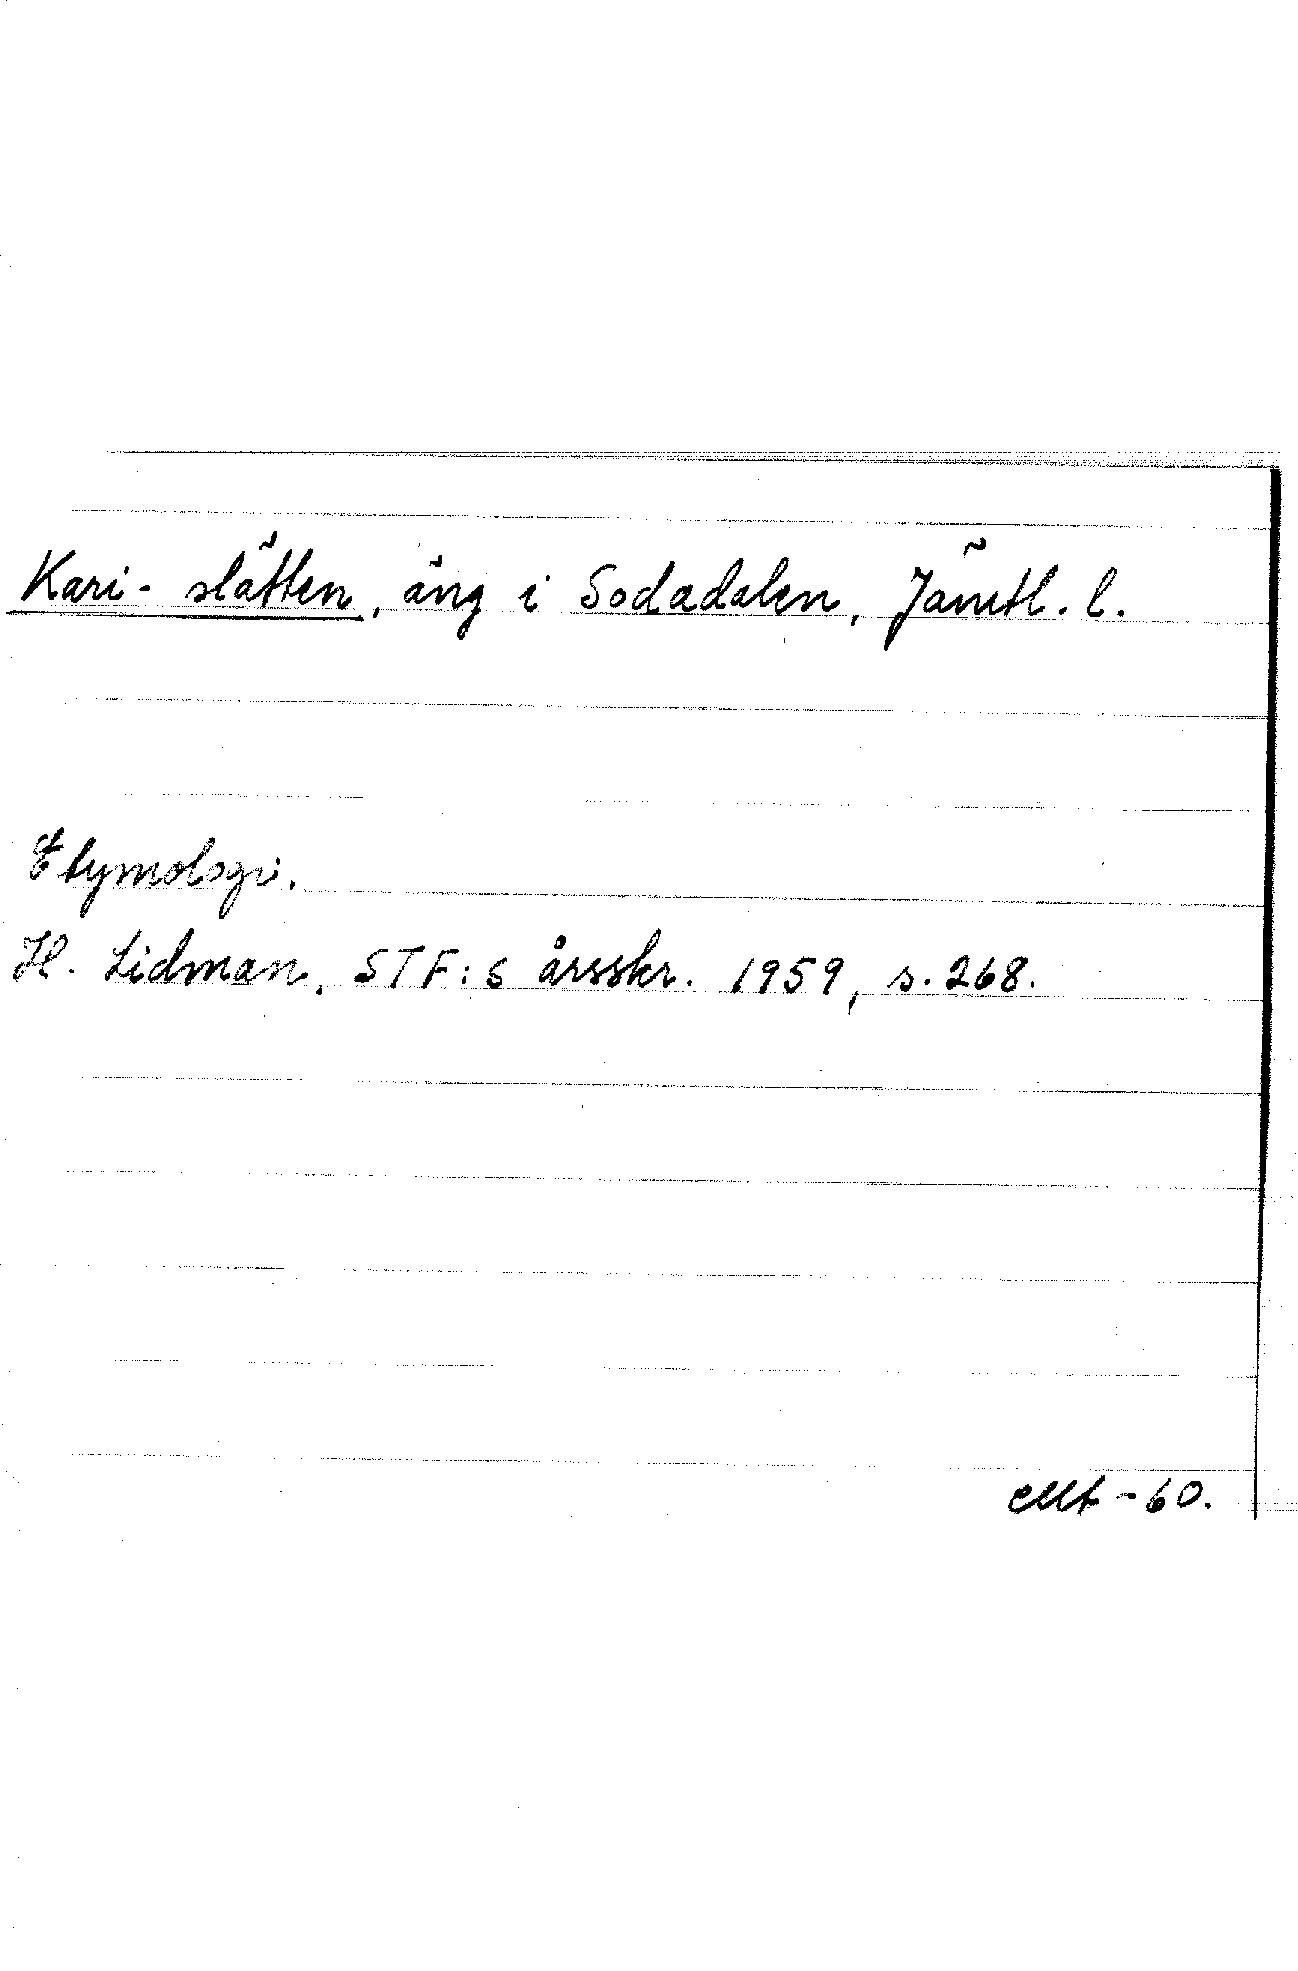 Kari-slåtten, äng i Sodadalen, Jämtl. l.
Etymologi.
H. Lidman, STF:s årsskr. 1959, s. 268.
-60.